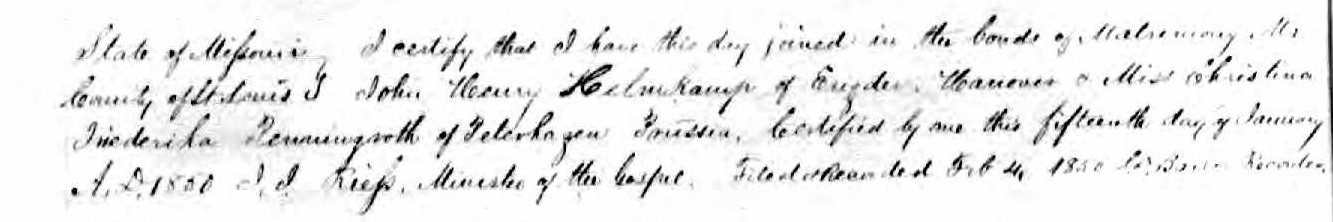 State of Missouri } I certify that I have this day joined in the bonds of Matrimony Mr
County of St Louis } John Henry Helmkamp of Engder, Hanover & Miss Christina
Friederika Renningroth of Petershagen Prussia. Certified by me this fifteenth day of January
A.D. 1850 J. J. Riess, Minister of the Gospel. Filed & Recorded Feb 4, 1850 Recorder.